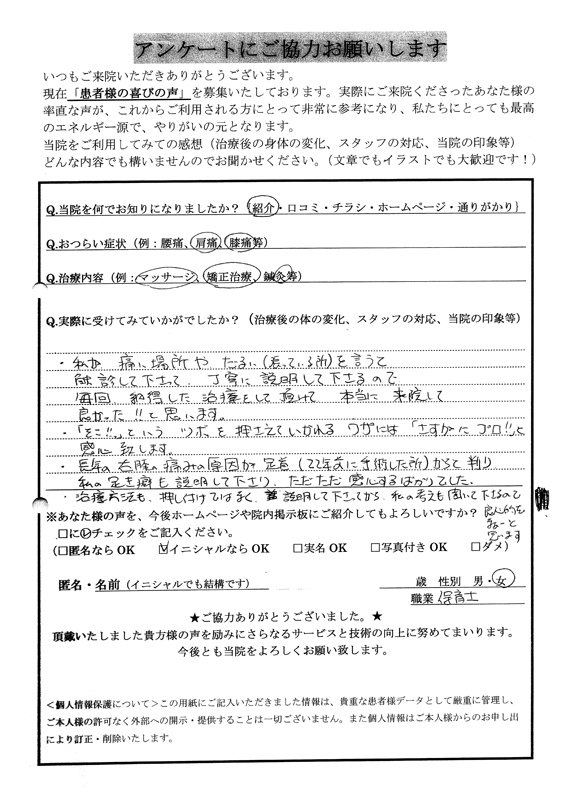 アンケートにご協力お願いします
いつもご来院いただきありがとうございます。
現在「患者様の喜びの声」を募集いたしております。実際にご来院くださったあなた様の
率直な声が、これからご利用される方にとって非常に参考になり、私たちにとっても最高
のエネルギー源で、やりがいの元となります。
当院をご利用してみての感想（治療後の身体の変化、スタッフの対応、当院の印象等）
どんな内容でも構いませんのでお聞かせください。（文章でもイラストでも大歓迎です！）
Q.当院を何でお知りになりましたか？（紹介・口コミ・チラシ・ホームページ・通りがかり）
Q.おつらい症状（例：腰痛、肩痛、膝痛等）
Q.治療内容（例：マッサージ、矯正治療、鍼灸等）
Q.実際に受けてみていかがでしたか？（治療後の体の変化、スタッフの対応、当院の印象等）
・私が 痛い場所や だるい（張っている所）を言うと
触診して下さって、丁寧に説明して下さるので
毎回 納得した 治療をして頂けて 本当に来院して
良かった!!と思います。
・「そこ!!」という ツボを 押さえていかれる ワザには「さすが プロ!!」と
感心致します。
・長年の右膝の痛みの原因が足首（22年前に手術した所）からと判り
私の足き癖も説明して下さり、ただただ感心するばかりでした。
・治療方法も、押し付けではなく、説明して下さってから、私の考えも聞いて下さるので
良心的だ
なぁーと
思います
※あなた様の声を、今後ホームページや院内掲示板にご紹介してもよろしいですか？
□に✓チェックをご記入ください。
（□匿名なら OK ☑イニシャルなら OK □実名 OK □写真付き OK □ダメ）
匿名・名前（イニシャルでも結構です） 歳 性別 男・女
職業 保育士
★ご協力ありがとうございました。★
頂戴いたしました貴方様の声を励みにさらなるサービスと技術の向上に努めてまいります。
今後とも当院をよろしくお願い致します。
＜個人情報保護について＞この用紙にご記入いただきました情報は、貴重な患者様データとして厳重に管理し、
ご本人様の許可なく外部への開示・提供することは一切ございません。また個人情報はご本人様からのお申し出
により訂正・削除いたします。